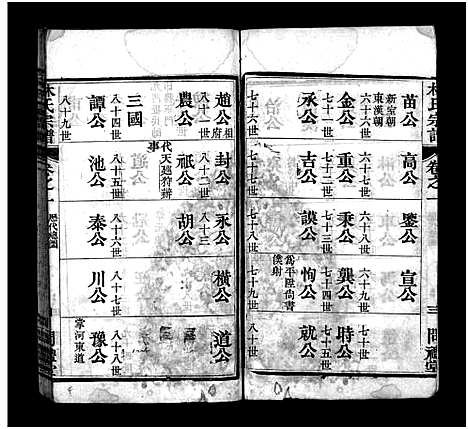 林氏宗譜
卷之一
三
問禮堂
苗公
高公
鑒公
宣公
新室朝
東漢朝
六十六世
金公
六十七世
重公
六十八世
秉公
六十九世
龔公
七十世
時公
七十一世
承公
七十二世
吉公
七十三世
謨公
七十四世
恂公
七十五世
就公
為平陵尚書
僕射
七十六世
七十七世
七十八世
七十九世
八十世
趙公
相府
封公
永公
橫公
道公
八十一世
農公
八十二世
祇公
八十三
胡公
事代
天越狩辦
三國
八十四世
譚公
八十五世
池公
八十六世
秦公
八十七世
川公
八十八世
豫公
掌河東道
八十九世
林氏宗譜
卷之一
歷代總圖